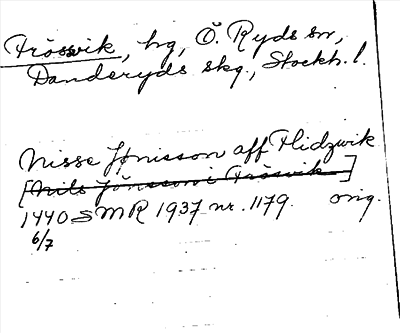 Frösvik, hg, Ö. Ryds sn,
Danderyds skg., Stockh. l.
Nisse Jønisson aff Flidzwik
[Nils Jönsson i Frösvik]
1440 SMR 1937 nr. 1179. orig.
6/7